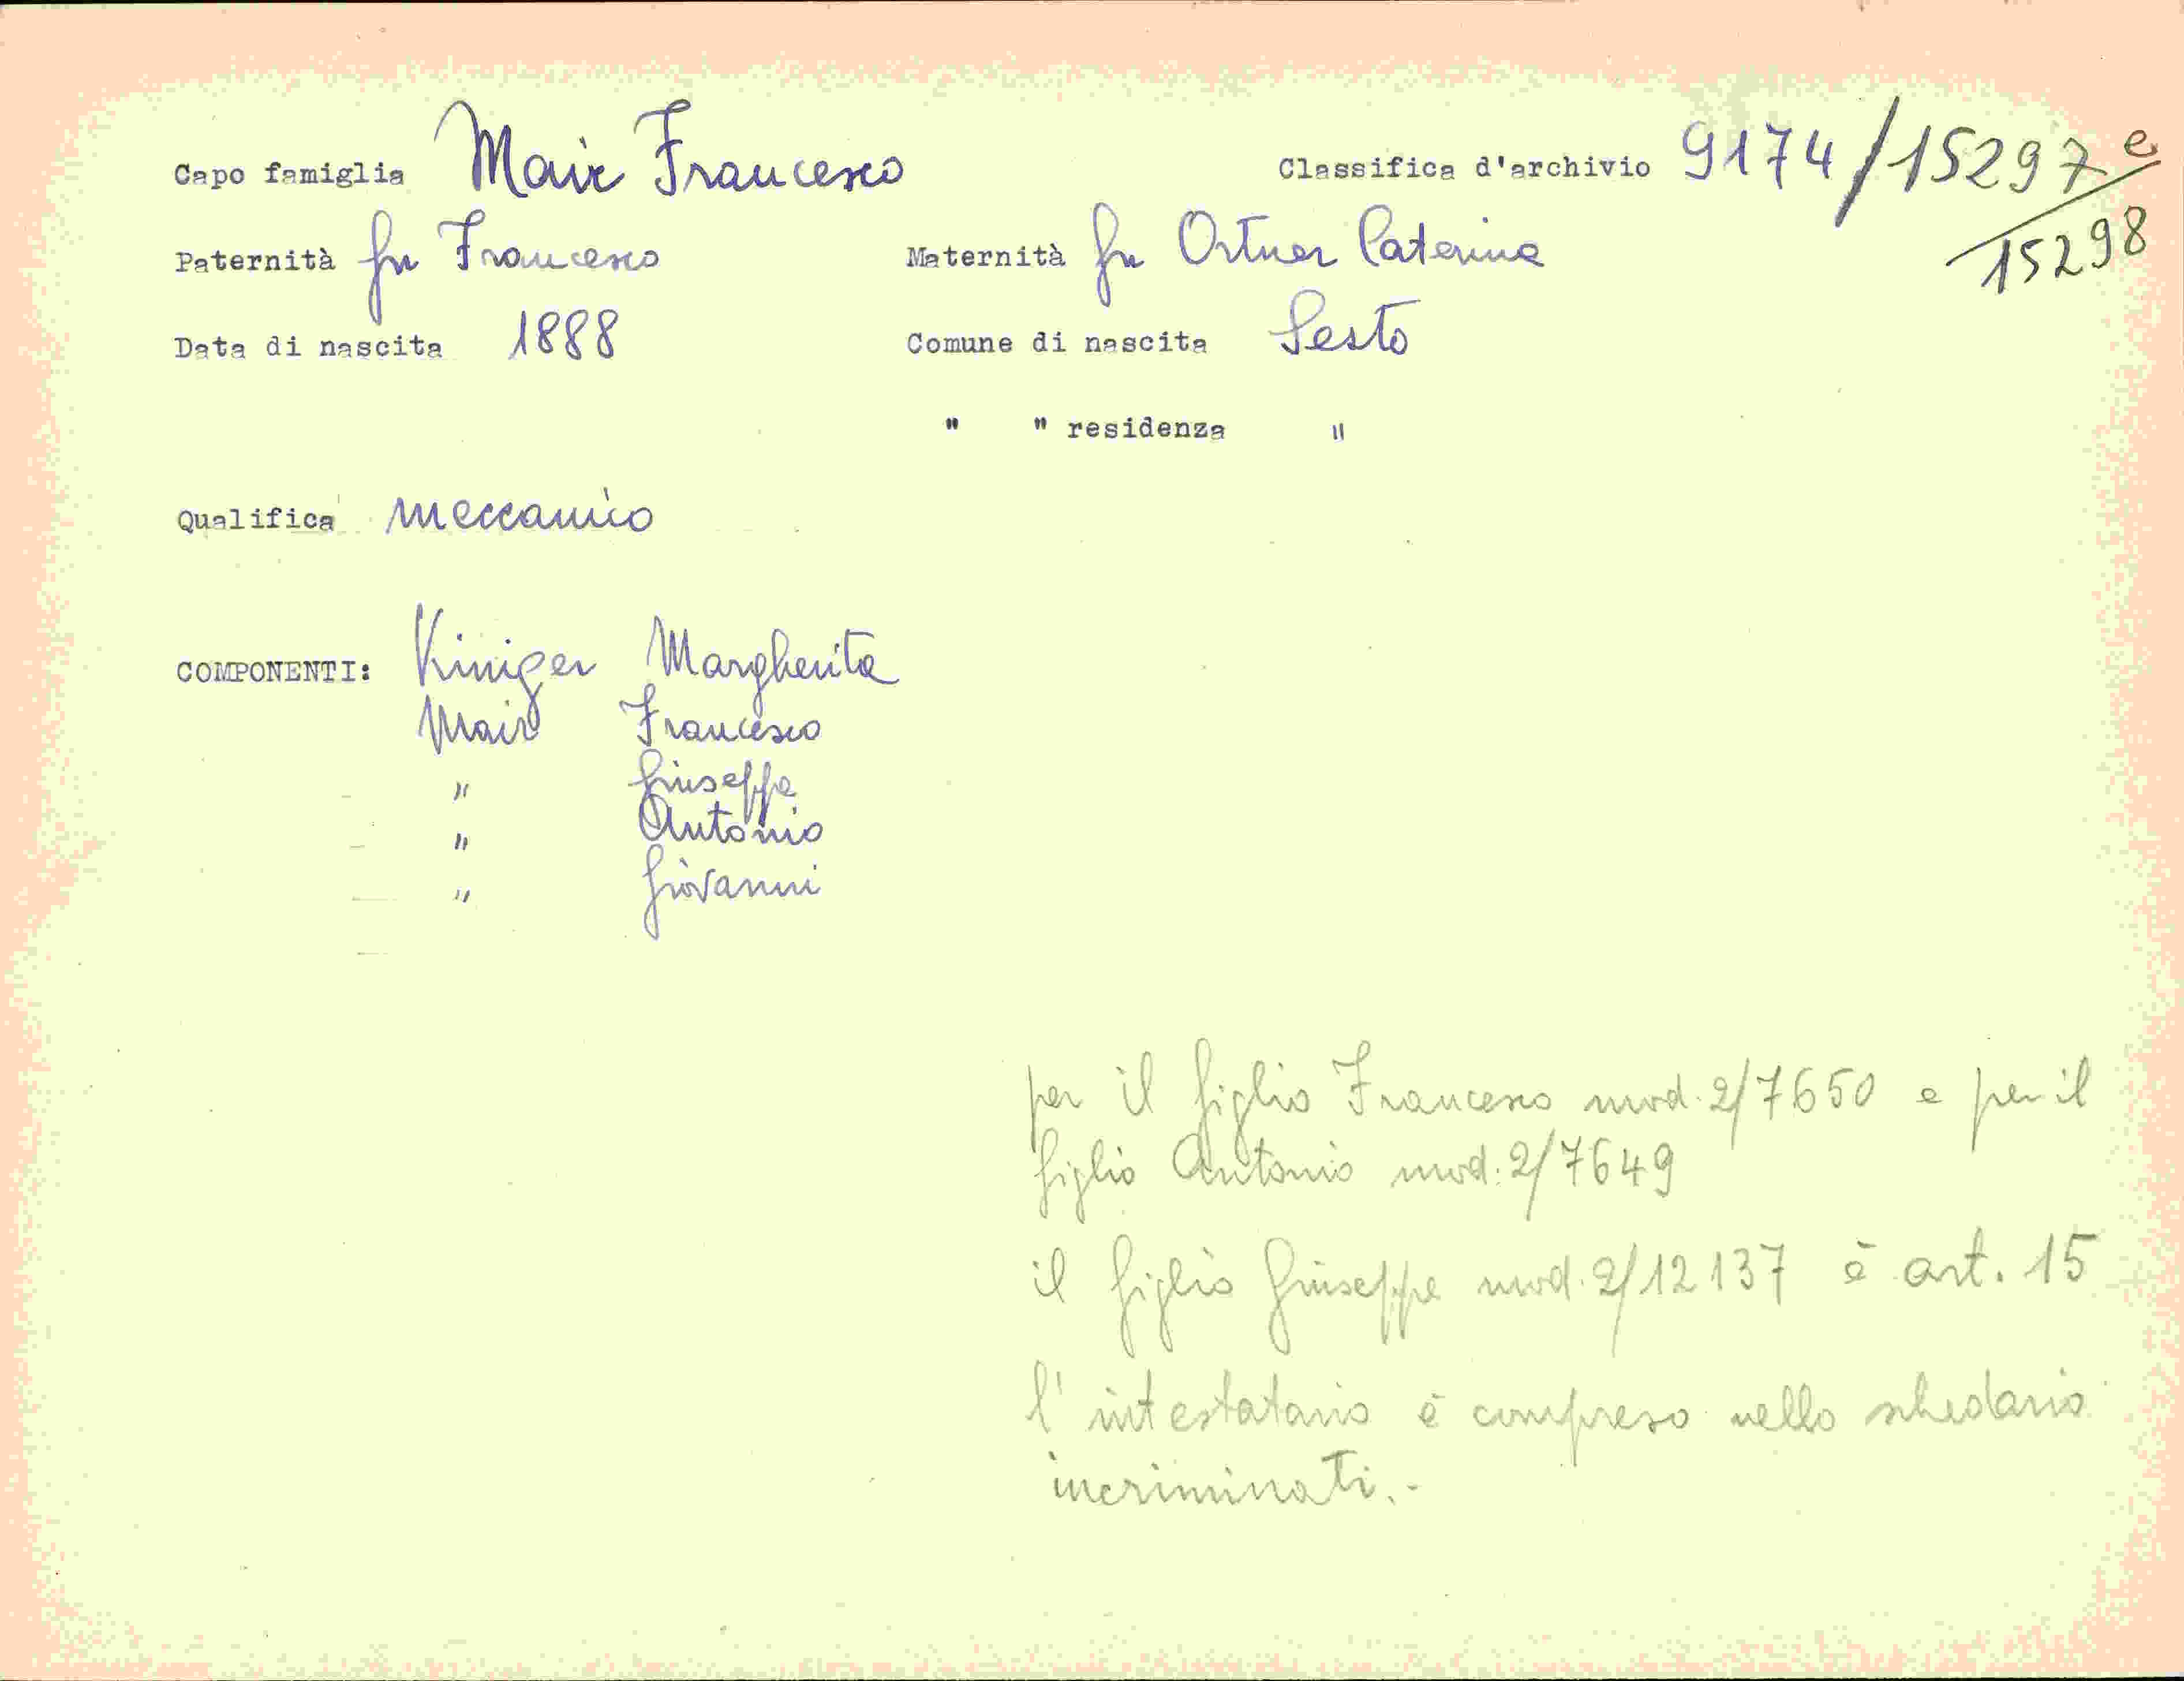 Capo famiglia Mair Francesco Classifica d'archivio 9174/15297 e
15298
Paternità fu Francesco Maternità fu Ortner Caterina
Data di nascita 1888 Comune di nascita Sesto
" " residenza "
Qualifica meccanico
COMPONENTI: Kiniger Margherita
Mair Francesco
" Giuseppe
" Antonio
" Giovanni
per il figlio Francesco mod. 2/7650 e per il
figlio Antonio mod. 2/7649
il figlio Giuseppe mod. 2/12137 è art. 15
l'intestatario è compreso nello schedario
incriminati.-